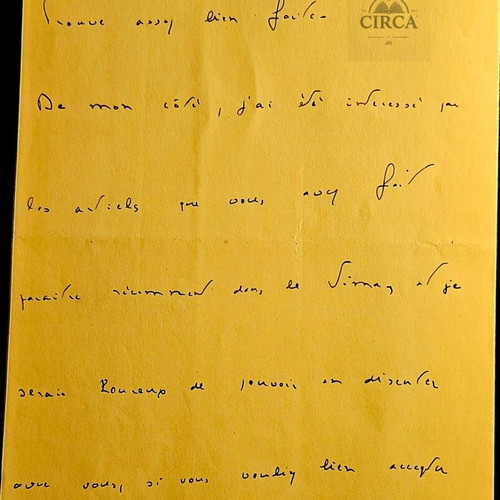 trouve assez bien faite.
CIRCA
De mon côté, j'ai été intéressé par
les articles que vous avez fait
paraître récemment dans le Figaro et je
serais heureux de pouvoir en discuter
avec vous, si vous vouliez bien accepter